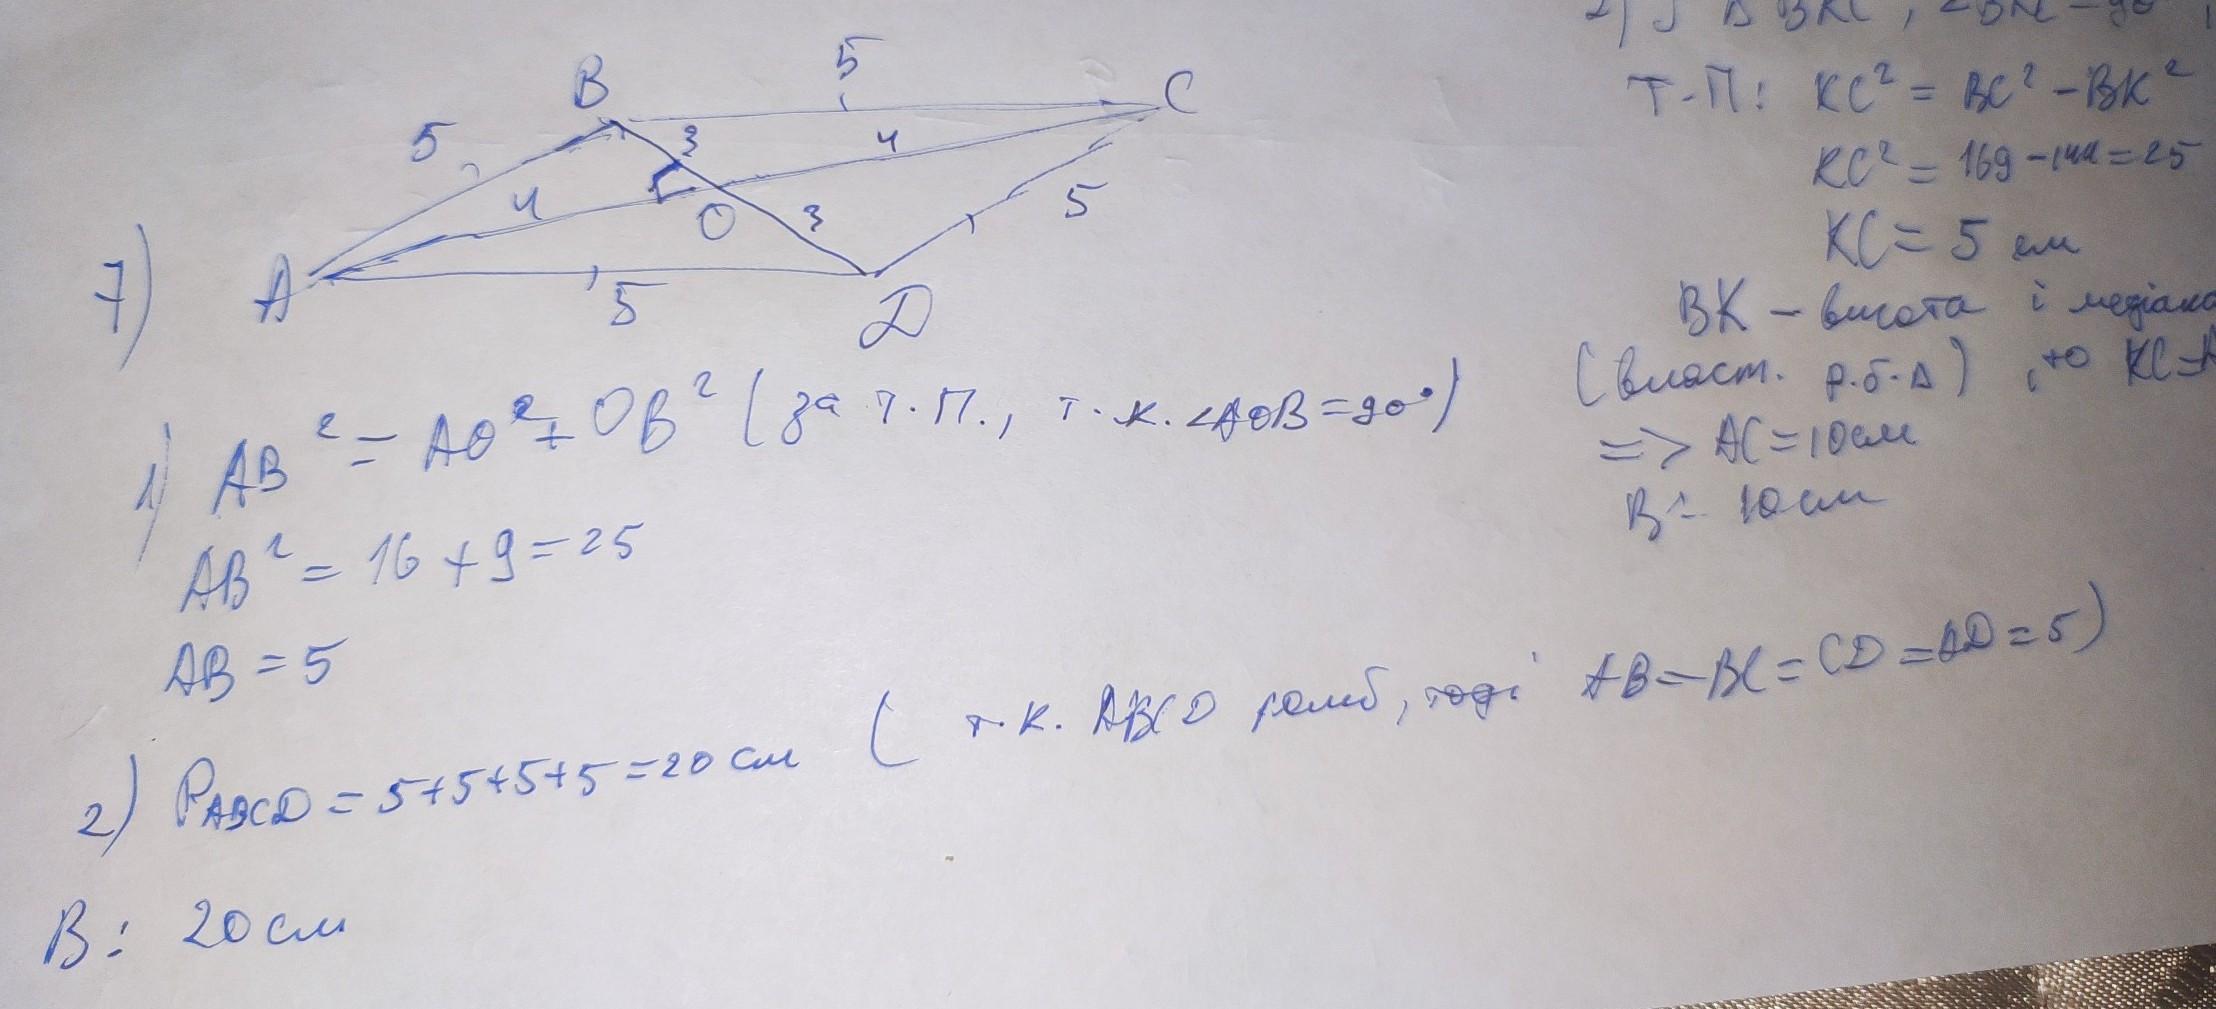 7)
B
5
C
5
3
4
4
O
3
5
A
5
D
1) AB² = AO² + OB² (за т.П., т.к. ∠AOB = 90°)
AB² = 16 + 9 = 25
AB = 5
2) P_ABCD = 5+5+5+5 = 20 см ( т.к. ABCD ромб, тоді AB = BC = CD = AD = 5)
В: 20 см
2) З Δ BKC, ∠BKC = 90°,
Т.П: KC² = BC² - BK²
KC² = 169 - 144 = 25
KC = 5 см
BK - висота і медіана
(власт. р.б.Δ), то KC=A
=> AC = 10 см
В: 10 см